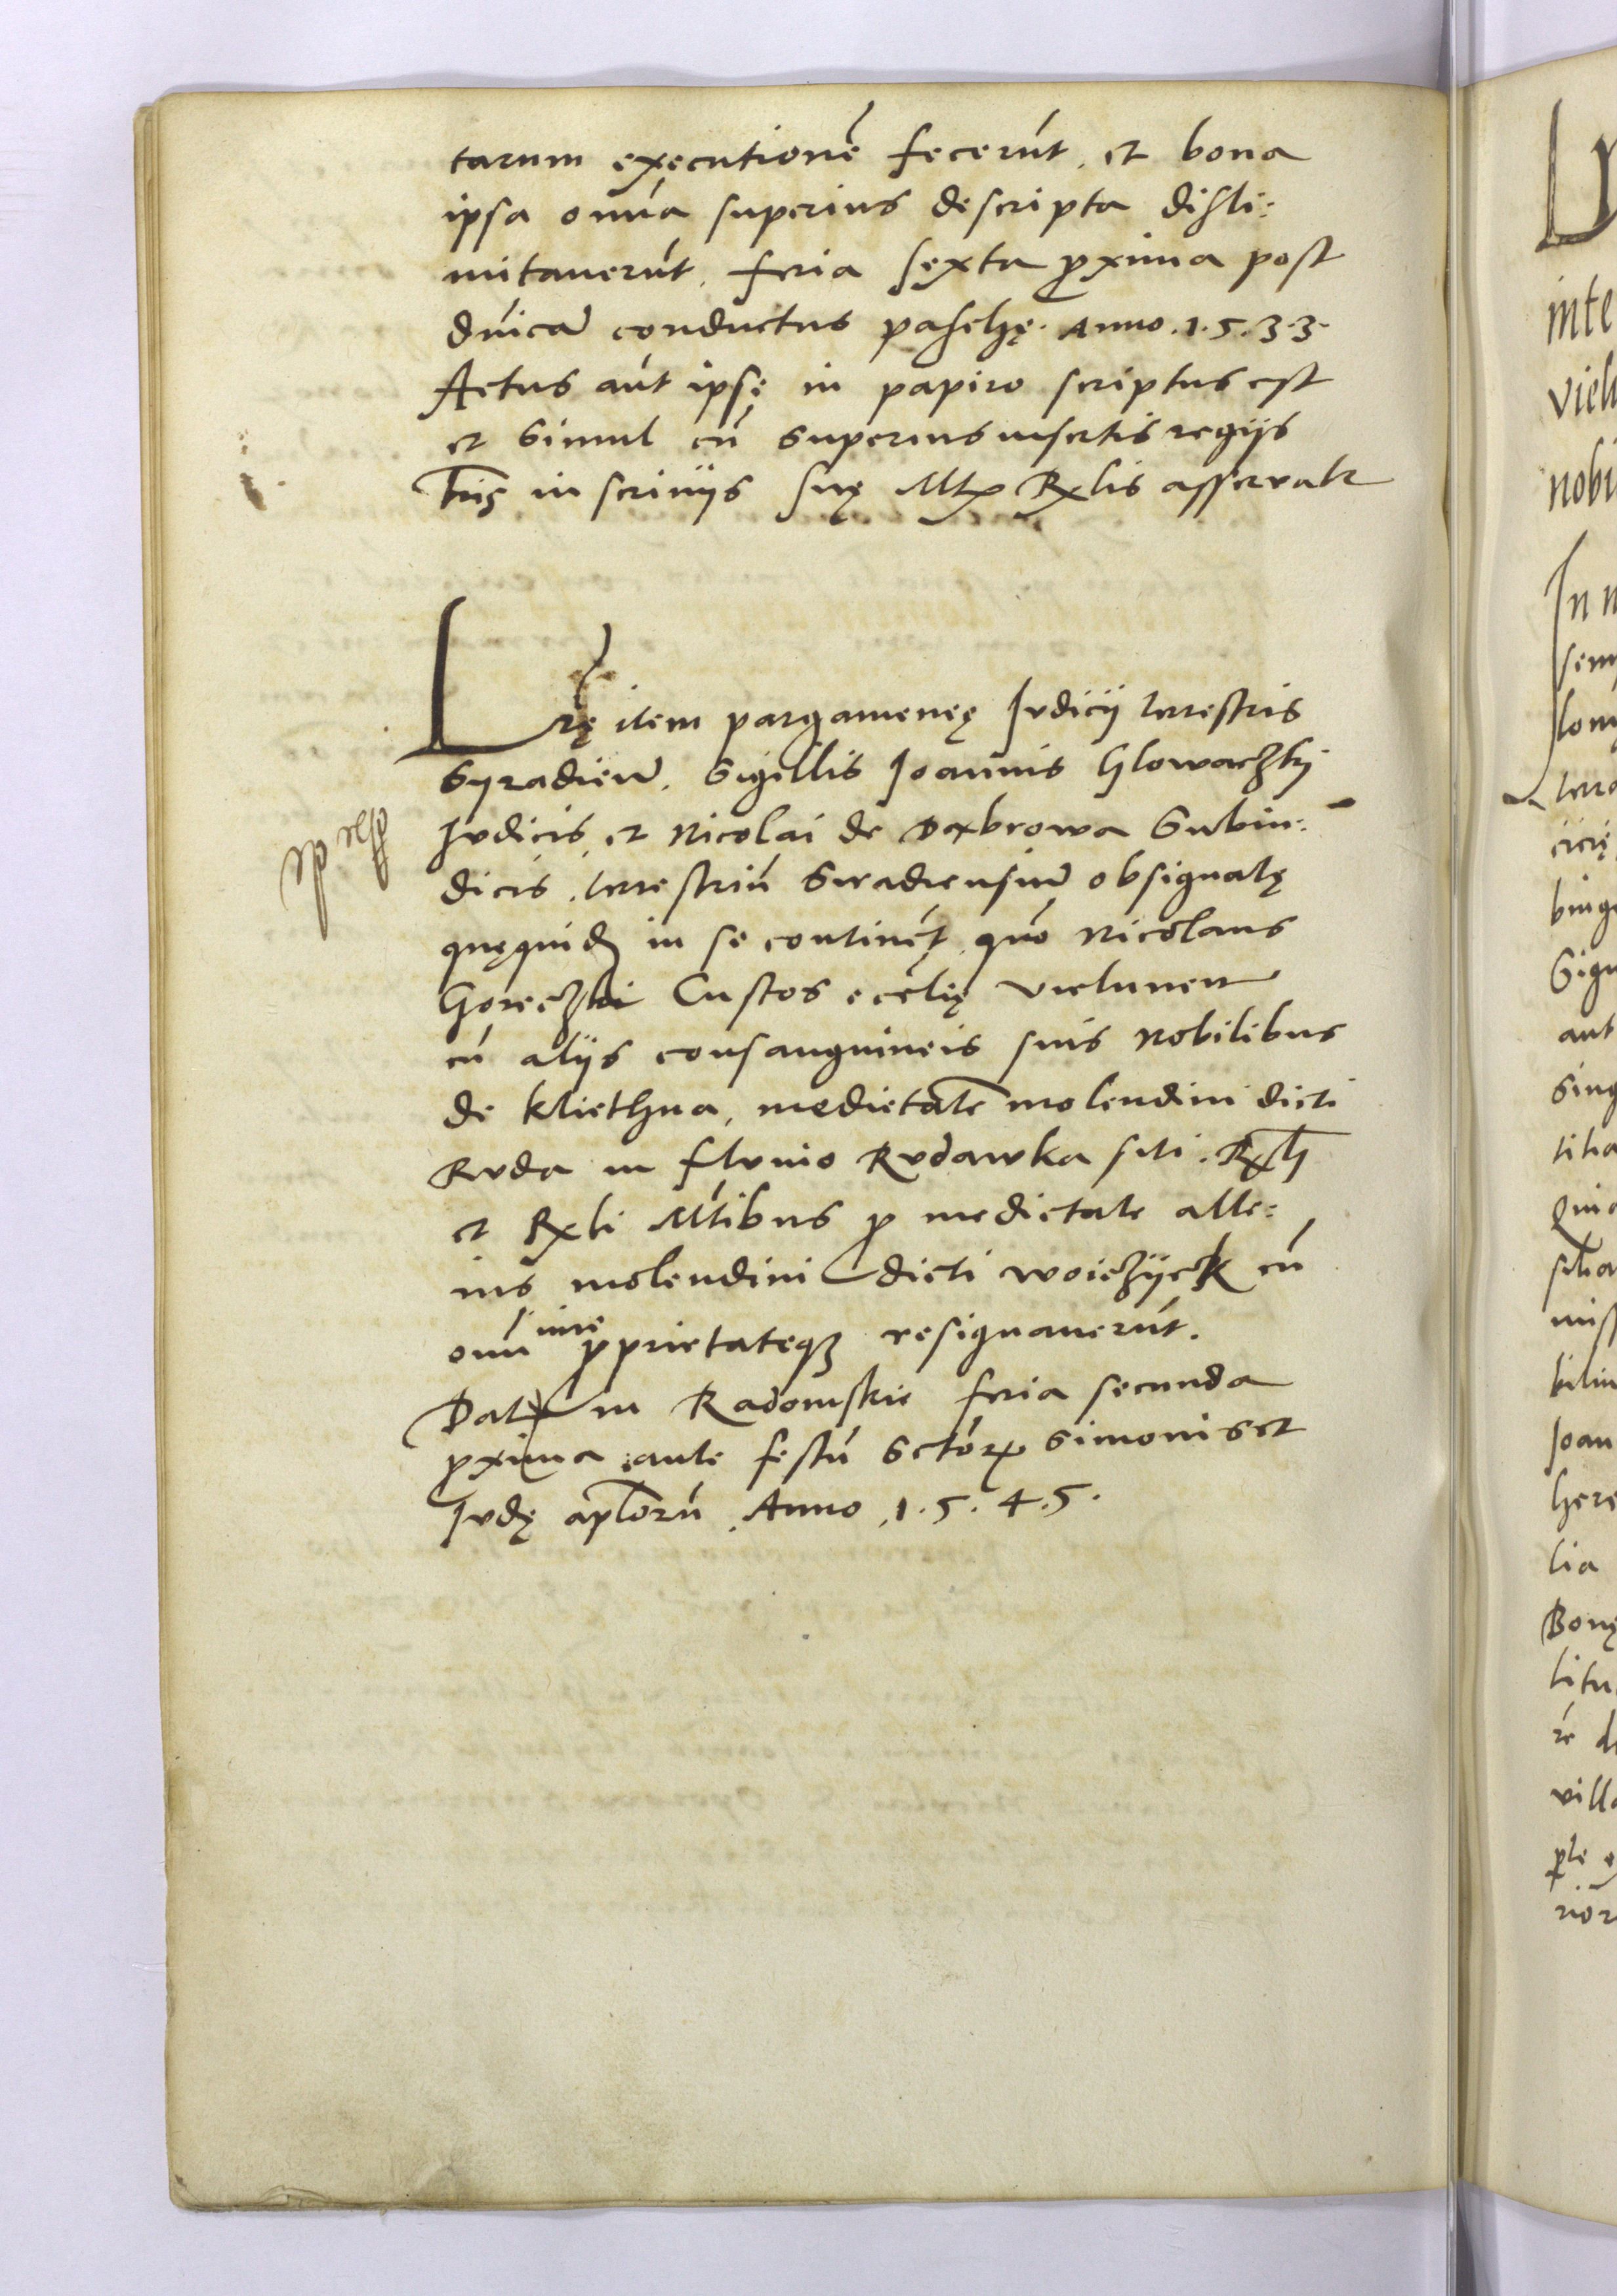 tarum executionē fecerūt, et bona
ipsa omīa superius descripta disli:
mitauerūt, feria sexta ꝓxima post
dnīcā conductus paschę. Anno .1.5.3.3.
Actus aūt ipsę in papiro scriptus est
et simul cū superius insertis regijs
lrīs in scrinijs suę Mtis Rx̄lis asservatr
Lrę item pargameneę Judicij terrestris
Syradien̄. Sigillis Joannis Glowaczky
Judicis, et Nicolai de Dąbrowa Subiu:
dicis, terrestriū Siradiensiū obsignatę
quęquidē in se continēt, quō Nicolaus
Goreczki Custos ecclīę vielunen̄
cū alijs consanguineis suis Nobilibus
de Kliethna, medietatē molendini dicti
Ruda in fluuio Rudawka siti. Rx̄li
et Rx̄li Mtībus ꝓ medietate alte:
ius molendini dicti Woiczijck cū
omni iure ꝓprietateqȝ resignauerūt.
Dat in Radomskie feria secunda
ꝓxima ante festū Sctōrꝝ Simonis et
Judę aplōrū, Anno .1.5.4.5.
inte
viel
nobi
In n
sem
lom
terra
bing
Sign
aut
sing
titia
Qui
sita
miss
bilin
Joan
here
lia
Bonę
litu
villa